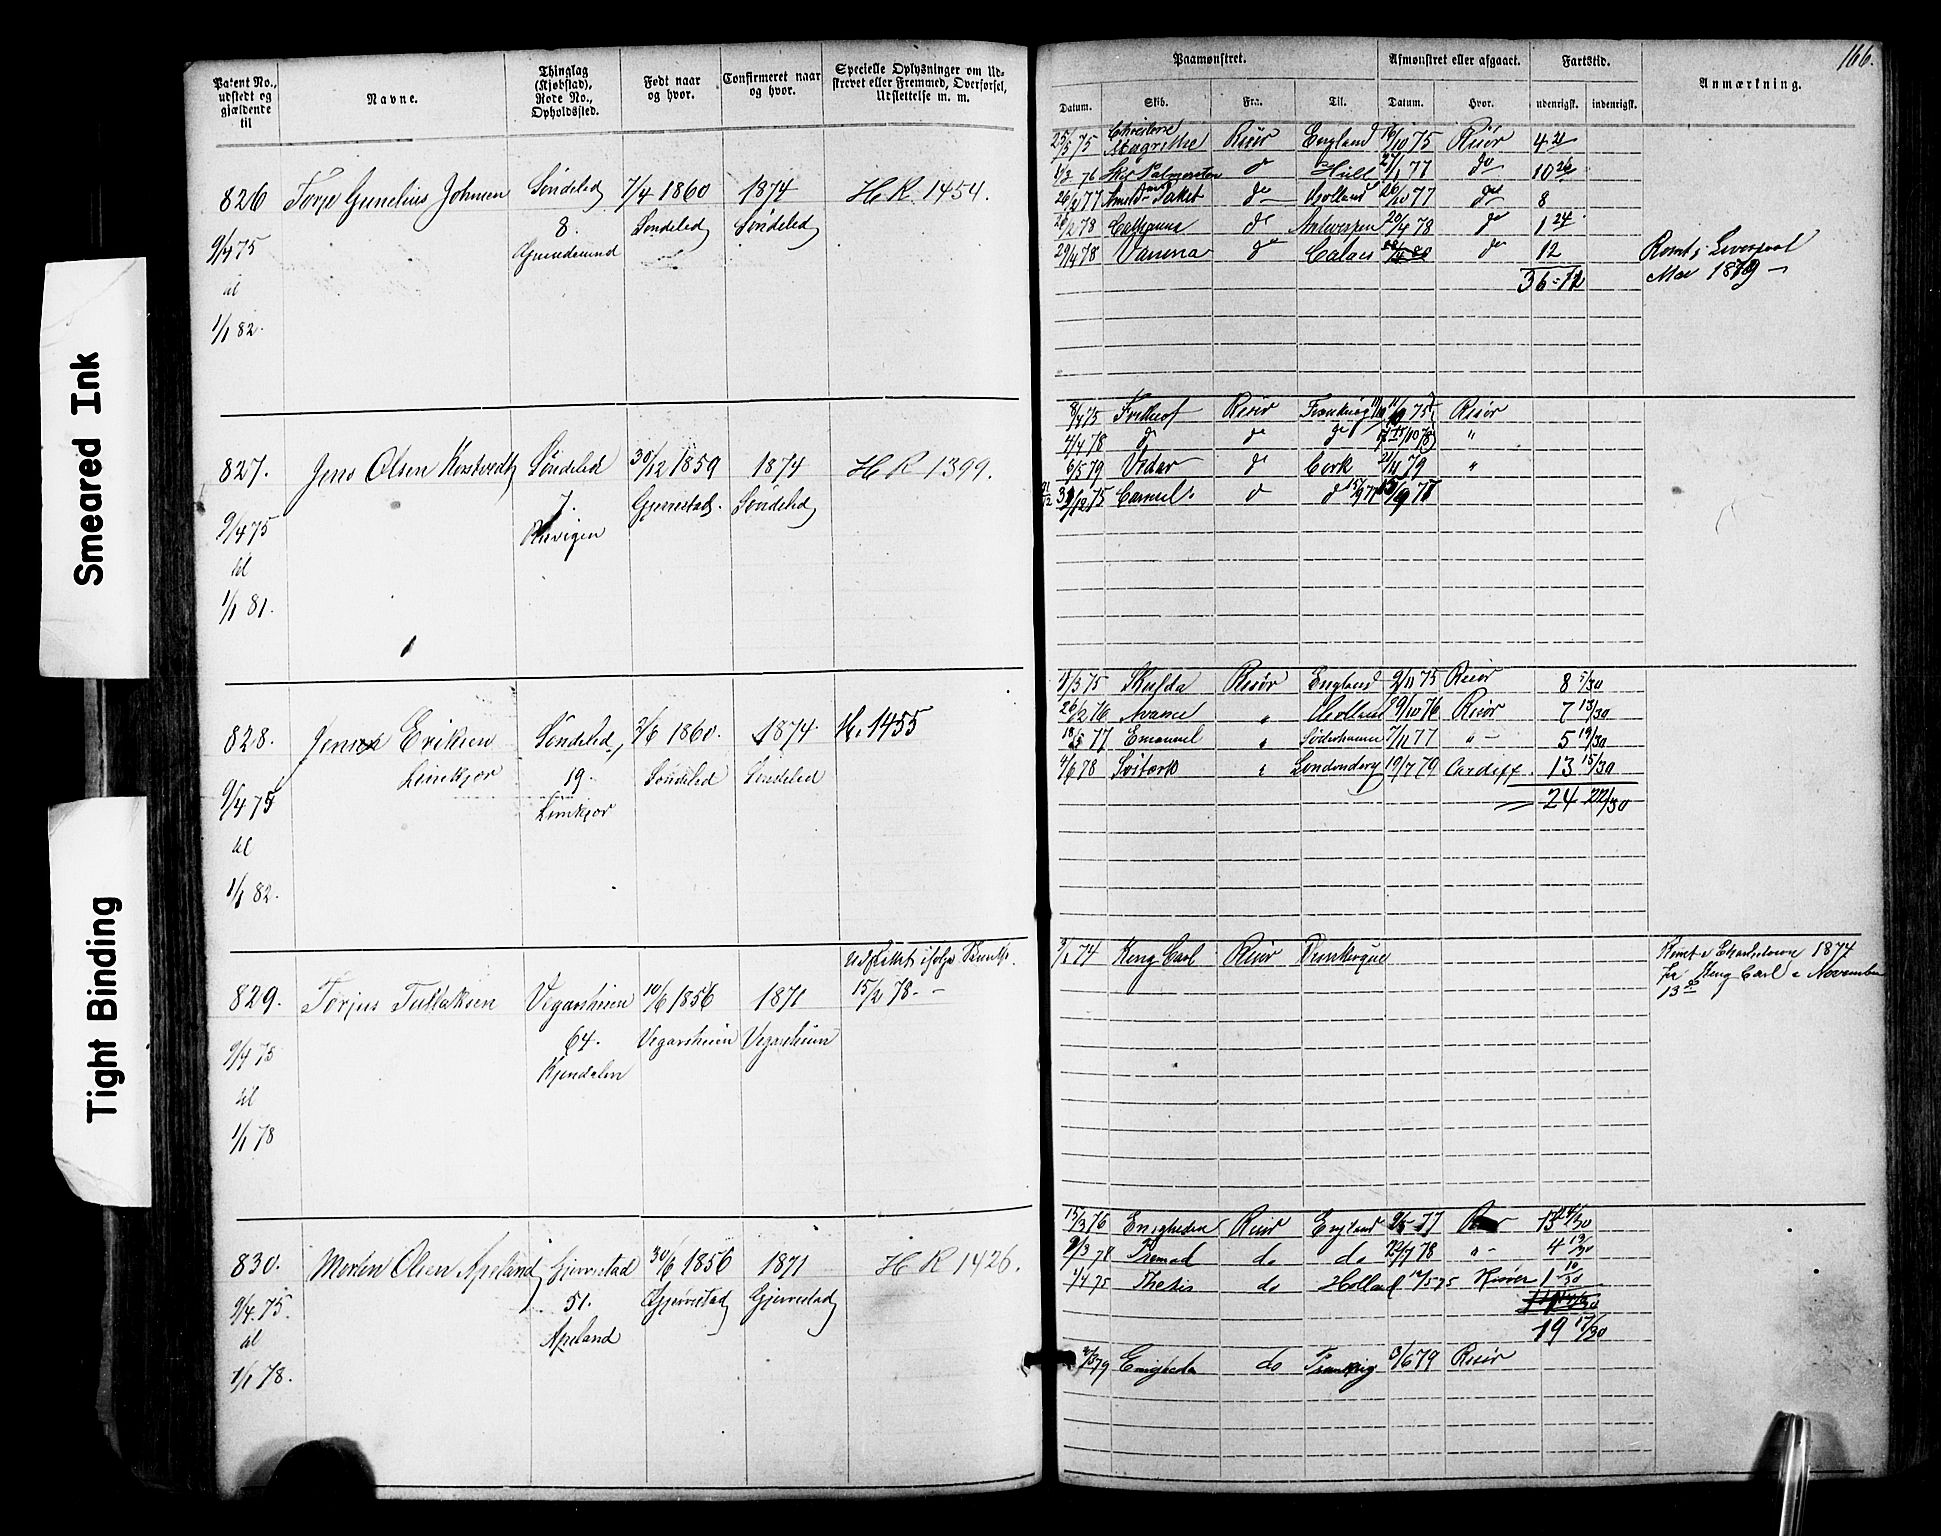 Smeared Ink
Tight Binding
166.
Patent No., udstedt og gjældende til
Navne.
Thinglag (Kjøbstad), Rode No., Opholdssted.
Født naar og hvor.
Confirmeret naar og hvor.
Specielle Oplysninger om Udskrevet eller Fremmed, Overførsel, Udslettelse m. m.
Paamønstret.
Afmønstret eller afgaaet.
Fartstid.
Anmærkning.
Datum. Skib. Fra. Til. Datum. Hvor. udenrigsk. indenrigsk.
826 Torje Gunelius Johnsen Søndeled 7/4 1860 1874 H R. 1454.
8. Søndeled Søndeled
9/4 75
til
1/1 82.
25/5 75 Risør England 16/10 75 Risør 4 21
76 Hull 27/1 77 do 10 26
77 do Holland 20/10 77 do 8
28/2 78 do Antwerpen 20/4 78 do 1 24
29/4 78 Vanina do Calais do 12
36-12
Rømt i Liverpool
Mai 1879 —
827. Jens Olsen Søndeled 30/12 1859 1874 H R 1399.
7. Gjerrestad. Søndeled
9/4 75
til
1/1 81.
8/4 75 Frithiof Risør 75 Risør
4/4 78 do do 78 "
6/5 79 Vidar do Cork 79 "
75 Carmel.
828. Eriksen Søndeled 2/6 1860. 1874. H. 1455
Limkjær 19. Søndeled Søndeled
9/4 75 Limkjær
til
1/1 82.
1/3 75 Skulda Risør England 9/11 75 Risør 8 5/30
26/2 76 Avance " Holland 29/10 76 Risør 7 13/30
77 Emanuel " Søderhamn 7/11 77 " — 5 19/30
4/6 78 " Londonderry 19/7 79 Cardiff. 13 15/30
24 22/30
829. Torjus Tellaksen Vegarsheien 10/6 1856 1871 15/2 78. —
64. Vegarsheien Vegarsheien
9/4 75 Kjendalen
til
1/1 78
74 Kong Carl Risør Dunkerque
Rømt i Charlestown 1874
fra Kong Carl i November
13de
830. Morten Olsen Apeland Gjerrestad 30/6 1856 1871 H R 1426.
51. Gjerrestad Gjerrestad
9/4. 75. Apeland
til
1/1 78.
15/3 76 Enigheden Risør England 77 13 24/30
78 do do 78 " — 4 13/30
1/4 75 Thetis do Holland 75 Risør 1 10/30
19 17/30
79 Enigheden do 3/6 79 Risør